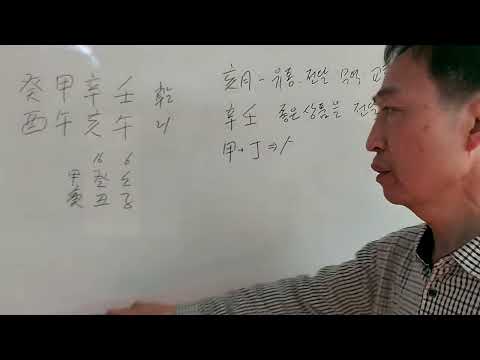 癸甲辛壬 乾
酉午亥午 21
16 6
甲 癸 壬
寅 丑 子
亥月 - 유통. 전달 무역
辛壬 좋은 상품을 전달
甲 丁 ⇒